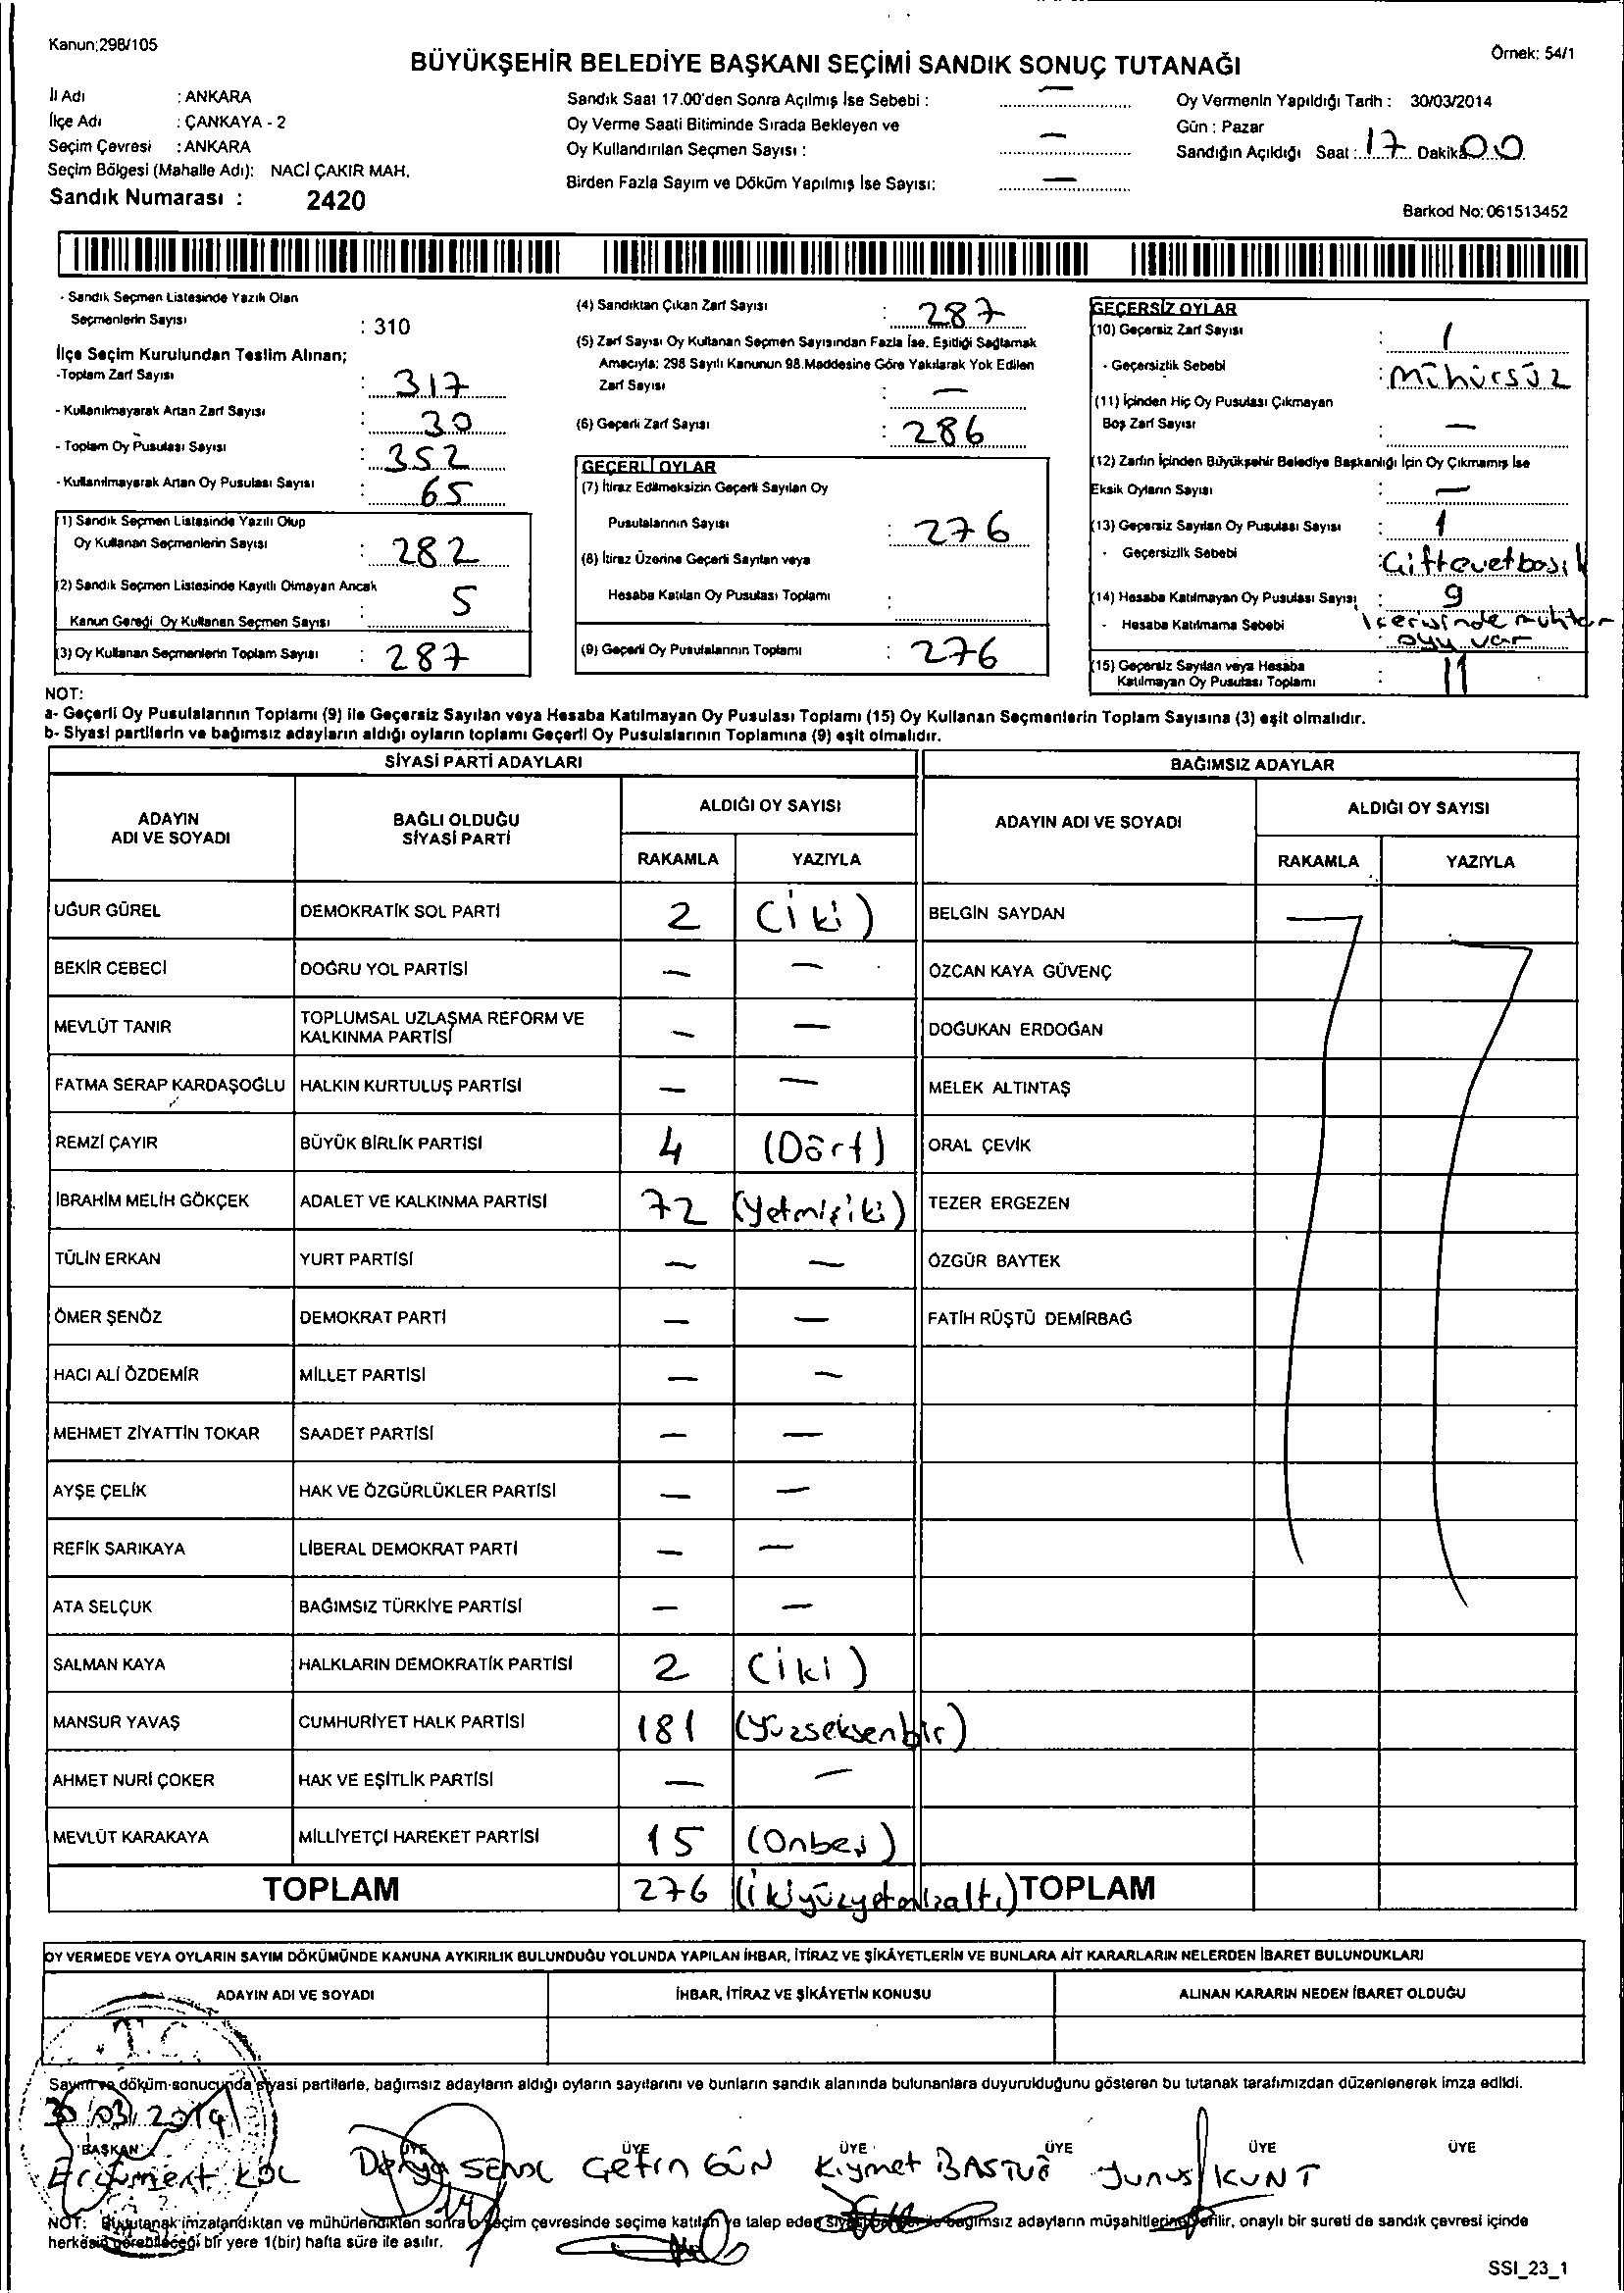 Kanun;298/105
BÜYÜKŞEHİR BELEDİYE BAŞKANI SEÇİMİ SANDIK SONUÇ TUTANAĞI
Örnek: 54/1
İl Adı : ANKARA
İlçe Adı : ÇANKAYA - 2
Seçim Çevresi : ANKARA
Seçim Bölgesi (Mahalle Adı): NACİ ÇAKIR MAH.
Sandık Numarası : 2420
Sandık Saat 17.00'den Sonra Açılmış İse Sebebi : —
Oy Verme Saati Bitiminde Sırada Bekleyen ve
Oy Kullandırılan Seçmen Sayısı : —
Birden Fazla Sayım ve Döküm Yapılmış İse Sayısı: —
Oy Vermenin Yapıldığı Tarih : 30/03/2014
Gün : Pazar
Sandığın Açıldığı Saat : 17 Dakika 00
Barkod No: 061513452
- Sandık Seçmen Listesinde Yazılı Olan
Seçmenlerin Sayısı : 310
İlçe Seçim Kurulundan Teslim Alınan;
-Toplam Zarf Sayısı : 317
- Kullanılmayarak Artan Zarf Sayısı : 30
- Toplam Oy Pusulası Sayısı : 352
- Kullanılmayarak Artan Oy Pusulası Sayısı : 65
(1) Sandık Seçmen Listesinde Yazılı Olup
Oy Kullanan Seçmenlerin Sayısı : 282
(2) Sandık Seçmen Listesinde Kayıtlı Olmayan Ancak
Kanun Gereği Oy Kullanan Seçmen Sayısı : 5
(3) Oy Kullanan Seçmenlerin Toplam Sayısı : 287
(4) Sandıktan Çıkan Zarf Sayısı : 287
(5) Zarf Sayısı Oy Kullanan Seçmen Sayısından Fazla İse, Eşitliği Sağlamak
Amacıyla; 298 Sayılı Kanunun 98.Maddesine Göre Yakılarak Yok Edilen
Zarf Sayısı : —
(6) Geçerli Zarf Sayısı : 286
GEÇERLİ OYLAR
(7) İtiraz Edilmeksizin Geçerli Sayılan Oy
Pusulalarının Sayısı : 276
(8) İtiraz Üzerine Geçerli Sayılan veya
Hesaba Katılan Oy Pusulası Toplamı :
(9) Geçerli Oy Pusulalarının Toplamı : 276
GEÇERSİZ OYLAR
(10) Geçersiz Zarf Sayısı : 1
- Geçersizlik Sebebi : Mühürsüz
(11) İçinden Hiç Oy Pusulası Çıkmayan
Boş Zarf Sayısı : —
(12) Zarfın İçinden Büyükşehir Belediye Başkanlığı İçin Oy Çıkmamış İse
Eksik Oyların Sayısı : —
(13) Geçersiz Sayılan Oy Pusulası Sayısı : 1
- Geçersizlik Sebebi : Çift evet basılı
(14) Hesaba Katılmayan Oy Pusulası Sayısı : 9
- Hesaba Katılmama Sebebi : İçerisinde muhtar
oyu var
(15) Geçersiz Sayılan veya Hesaba
Katılmayan Oy Pusulası Toplamı : 11
NOT:
a- Geçerli Oy Pusulalarının Toplamı (9) ile Geçersiz Sayılan veya Hesaba Katılmayan Oy Pusulası Toplamı (15) Oy Kullanan Seçmenlerin Toplam Sayısına (3) eşit olmalıdır.
b- Siyasi partilerin ve bağımsız adayların aldığı oyların toplamı Geçerli Oy Pusulalarının Toplamına (9) eşit olmalıdır.
SİYASİ PARTİ ADAYLARI BAĞIMSIZ ADAYLAR
ADAYIN ADI VE SOYADI BAĞLI OLDUĞU SİYASİ PARTİ ALDIĞI OY SAYISI ADAYIN ADI VE SOYADI ALDIĞI OY SAYISI
RAKAMLA YAZIYLA RAKAMLA YAZIYLA
UĞUR GÜREL DEMOKRATİK SOL PARTİ 2 (iki) BELGİN SAYDAN
BEKİR CEBECİ DOĞRU YOL PARTİSİ — — ÖZCAN KAYA GÜVENÇ
MEVLÜT TANIR TOPLUMSAL UZLAŞMA REFORM VE KALKINMA PARTİSİ — — DOĞUKAN ERDOĞAN
FATMA SERAP KARDAŞOĞLU HALKIN KURTULUŞ PARTİSİ — — MELEK ALTINTAŞ
REMZİ ÇAYIR BÜYÜK BİRLİK PARTİSİ 4 (Dört) ORAL ÇEVİK
İBRAHİM MELİH GÖKÇEK ADALET VE KALKINMA PARTİSİ 72 (Yetmişiki) TEZER ERGEZEN
TÜLİN ERKAN YURT PARTİSİ — — ÖZGÜR BAYTEK
ÖMER ŞENÖZ DEMOKRAT PARTİ — — FATİH RÜŞTÜ DEMİRBAĞ
HACI ALİ ÖZDEMİR MİLLET PARTİSİ — —
MEHMET ZİYATTİN TOKAR SAADET PARTİSİ — —
AYŞE ÇELİK HAK VE ÖZGÜRLÜKLER PARTİSİ — —
REFİK SARIKAYA LİBERAL DEMOKRAT PARTİ — —
ATA SELÇUK BAĞIMSIZ TÜRKİYE PARTİSİ — —
SALMAN KAYA HALKLARIN DEMOKRATİK PARTİSİ 2 (iki)
MANSUR YAVAŞ CUMHURİYET HALK PARTİSİ 181 (Yüzseksenbir)
AHMET NURİ ÇOKER HAK VE EŞİTLİK PARTİSİ — —
MEVLÜT KARAKAYA MİLLİYETÇİ HAREKET PARTİSİ 15 (Onbeş)
TOPLAM 276 (ikiyüzyetmişaltı) TOPLAM
OY VERMEDE VEYA OYLARIN SAYIM DÖKÜMÜNDE KANUNA AYKIRILIK BULUNDUĞU YOLUNDA YAPILAN İHBAR, İTİRAZ VE ŞİKÂYETLERİN VE BUNLARA AİT KARARLARIN NELERDEN İBARET BULUNDUKLARI
ADAYIN ADI VE SOYADI İHBAR, İTİRAZ VE ŞİKÂYETİN KONUSU ALINAN KARARIN NEDEN İBARET OLDUĞU
T.C.
Sayım ve döküm sonucunda siyasi partilerle, bağımsız adayların aldığı oyların sayılarını ve bunların sandık alanında bulunanlara duyurulduğunu gösteren bu tutanak tarafımızdan düzenlenerek imza edildi.
30/03/2014
BAŞKAN ÜYE ÜYE ÜYE ÜYE ÜYE ÜYE
KOL Derya Çetin GÜN Kıymet BASTUĞ Yunus KUNT
NOT: Bu tutanak imzalandıktan ve mühürlendikten sonra o seçim çevresinde seçime katılan ve talep eden siyasi bağımsız adayların müşahitlerine verilir, onaylı bir sureti de sandık çevresi içinde
herkesin görebileceği bir yere 1(bir) hafta süre ile asılır.
SSI_23_1